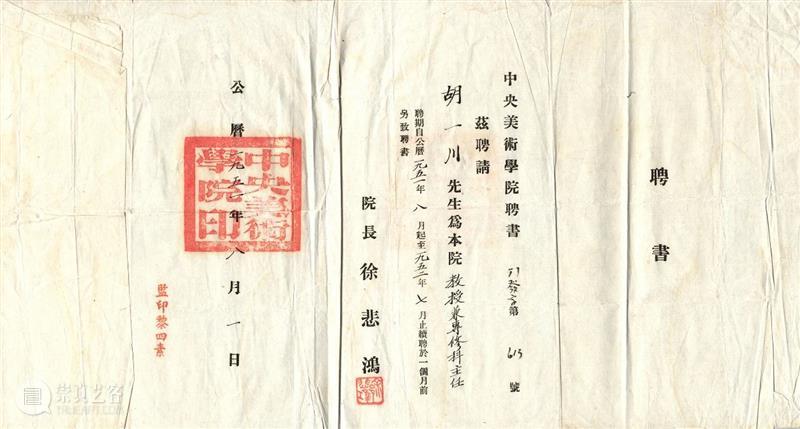 聘書
中央美術學院聘書 字第 613 號
茲聘請
胡一川先生為本院教授兼專修科主任
聘期自公曆一九五一年八月起至一九五二年七月止續聘於一個月前
另致聘書
院長 徐悲鴻
公曆一九五一年八月一日
中央美術學院印
監印黎四素
崇真艺客
WWW.TRUEART.COM